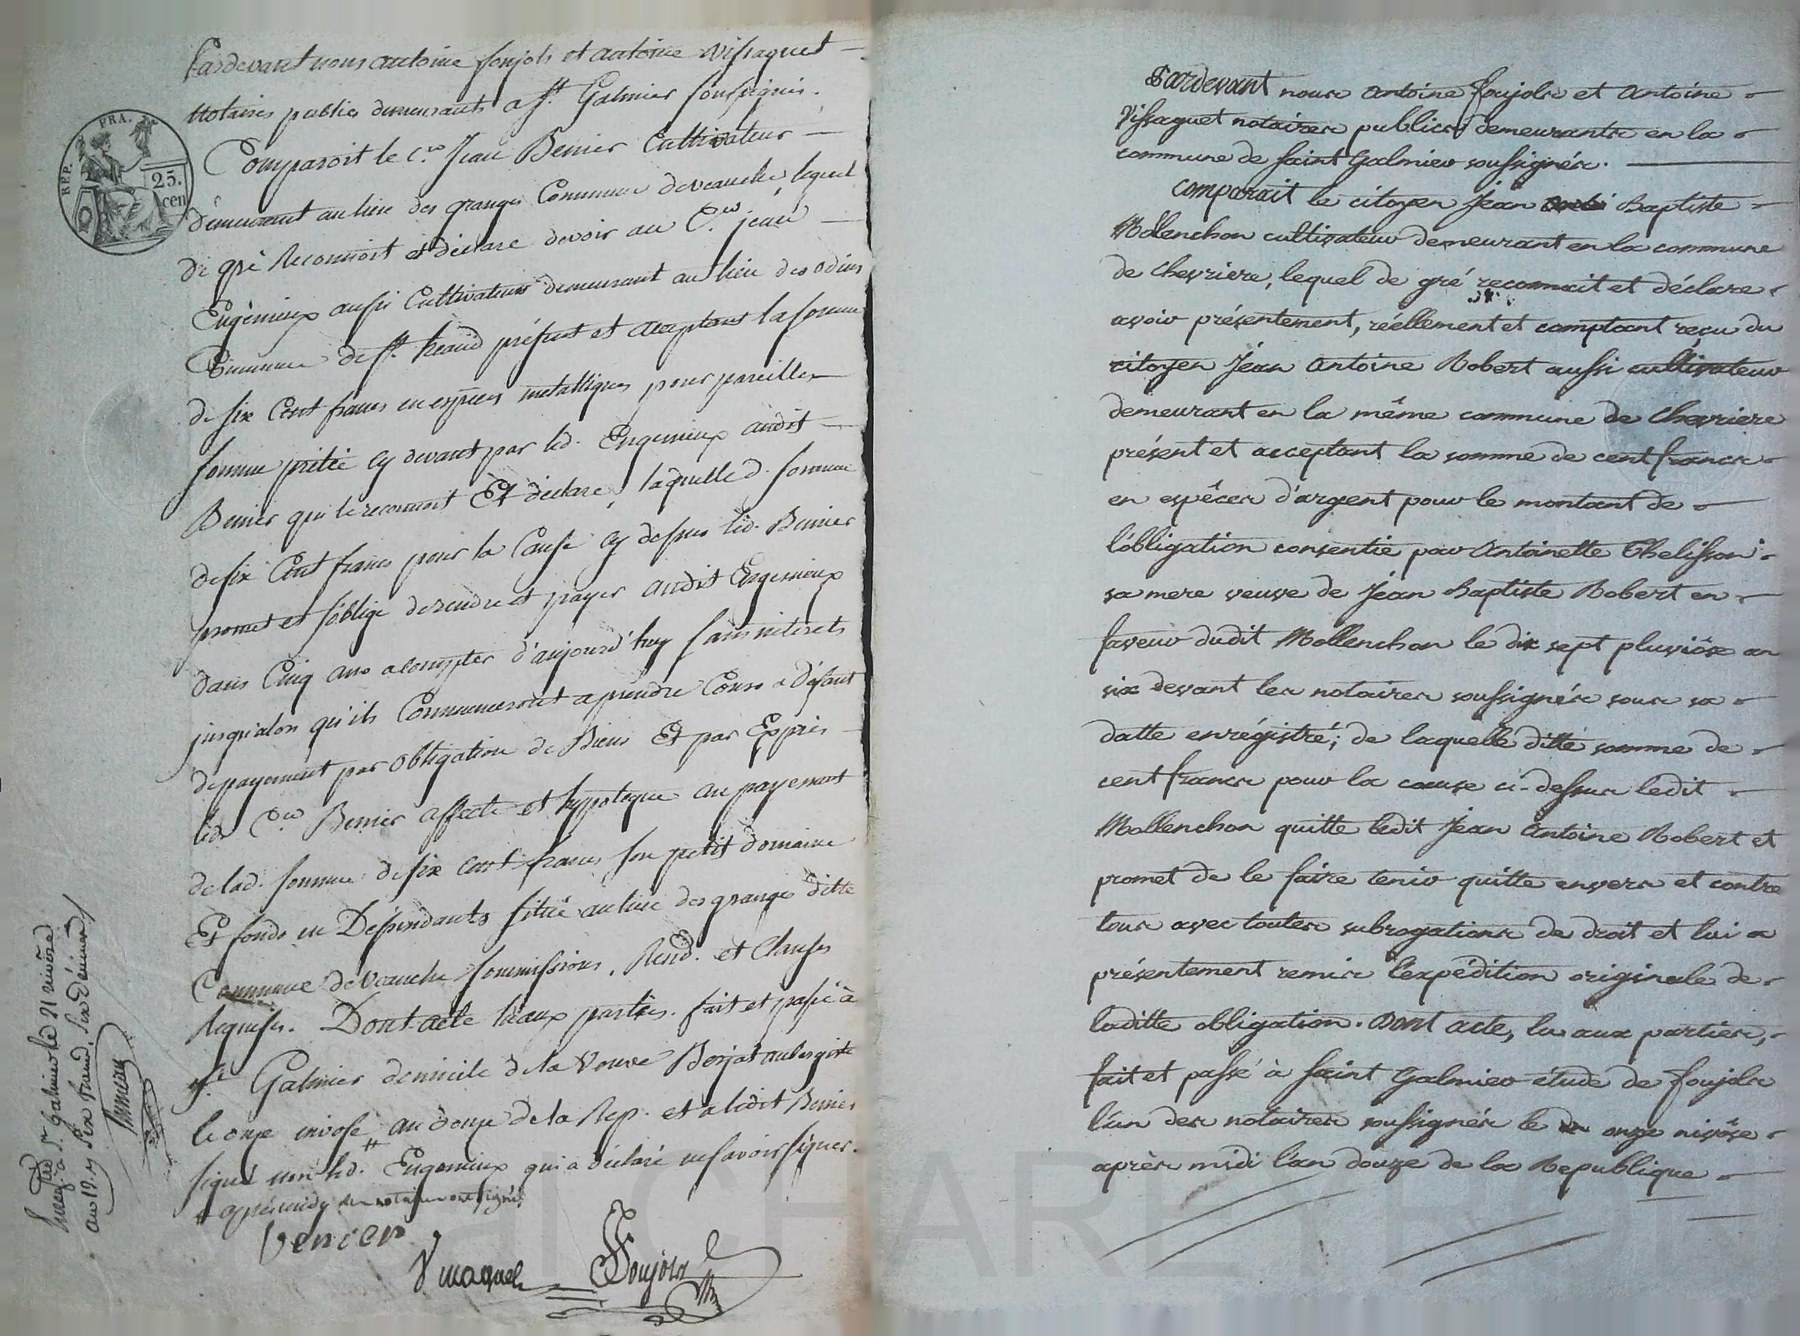 Pardevant nous antoine foujols et antoine Vissaguet
Notaires publics demeurants a st. Galmier soussignés.
Comparoit le c.en Jean Benier Cultivateur
demeurant au lieu des granges Commune de veauche, lequel
de gré Reconnoit et déclare devoir au C.en jean
Eugènieux aussi Cultivateur demeurant au lieu des odins
Commune de st. heand présent et acceptant la somme
de six Cent francs en espèces metalliques pour pareille
somme prêtée cy devant par led. Eugenieux audit
Benier qui le reconnoit Et déclare, laquelle d. somme
de six Cent francs pour la Cause cy dessus led. Benier
promet et s'oblige de rendre et payer audit Eugenieux
dans Cinq ans a compter d'aujourd'huy sans interets
jusqu'alors qu'ils Commenceront a prendre Cours a défaut
de payement par obligation de Biens Et par Exprès
led. C.en Benier affecte et hypoteque au payement
de lad. somme de six cent francs son petit domaine
Et fonds en Dépendants situé au lieu des granges ditte
Commune de Veauche soummissions, Rend. et Clauses
Requises. Dont acte lu aux parties. fait et passé à
st. Galmier domicile de la Veuve Bonjat aubergiste
le onze nivose an douze de la Rep. et a ledit Benier
signé non led. # Eugenieux qui a déclaré ne savoir signer.
# après midy les notaires ont signé
benier
Vissaguet
Foujols
REP. FRA.
25.
cen
Enreg.tré à St. Galmier le 21 nivôse
an 12. Six francs, Six décimes
Pardevant nous Antoine Foujols et Antoine
Vissaguet notaires publics demeurants en la
commune de saint Galmier soussignés.
Comparait le citoyen Jean Baptiste
Mollenchon cultivateur demeurant en la commune
de Chevriere, lequel de gré reconnait et déclare
avoir présentement, réellement et comptant reçu du
citoyen Jean Antoine Robert aussi cultivateur
demeurant en la même commune de Chevriere
présent et acceptant la somme de cent francs
en espèces d'argent pour le montant de
l'obligation consentie par Antoinette Thelisson
sa mere veuve de Jean Baptiste Robert en
faveur dudit Mollenchon le dix sept pluviôse an
six devant les notaires soussignés sous sa
datte enrégistré; de laquelle ditte somme de
cent francs pour la cause ci-dessus ledit
Mollenchon quitte ledit Jean Antoine Robert et
promet de le faire tenir quitte envers et contre
tous avec toutes subrogations de droit et lui a
présentement remis l'expédition originale de
laditte obligation. Dont acte, lu aux parties,
fait et passé à saint Galmier étude de foujols
l'un des notaires soussignés le onze nivôse
après midi l'an douze de la Republique
al CHARLEYRON